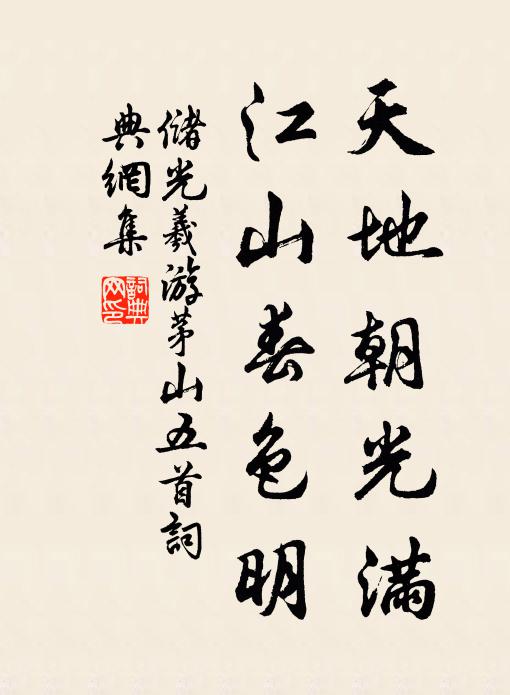 天地朝光满
江山春色明
储光羲游茅山五首詞
典網集
詞典
网印